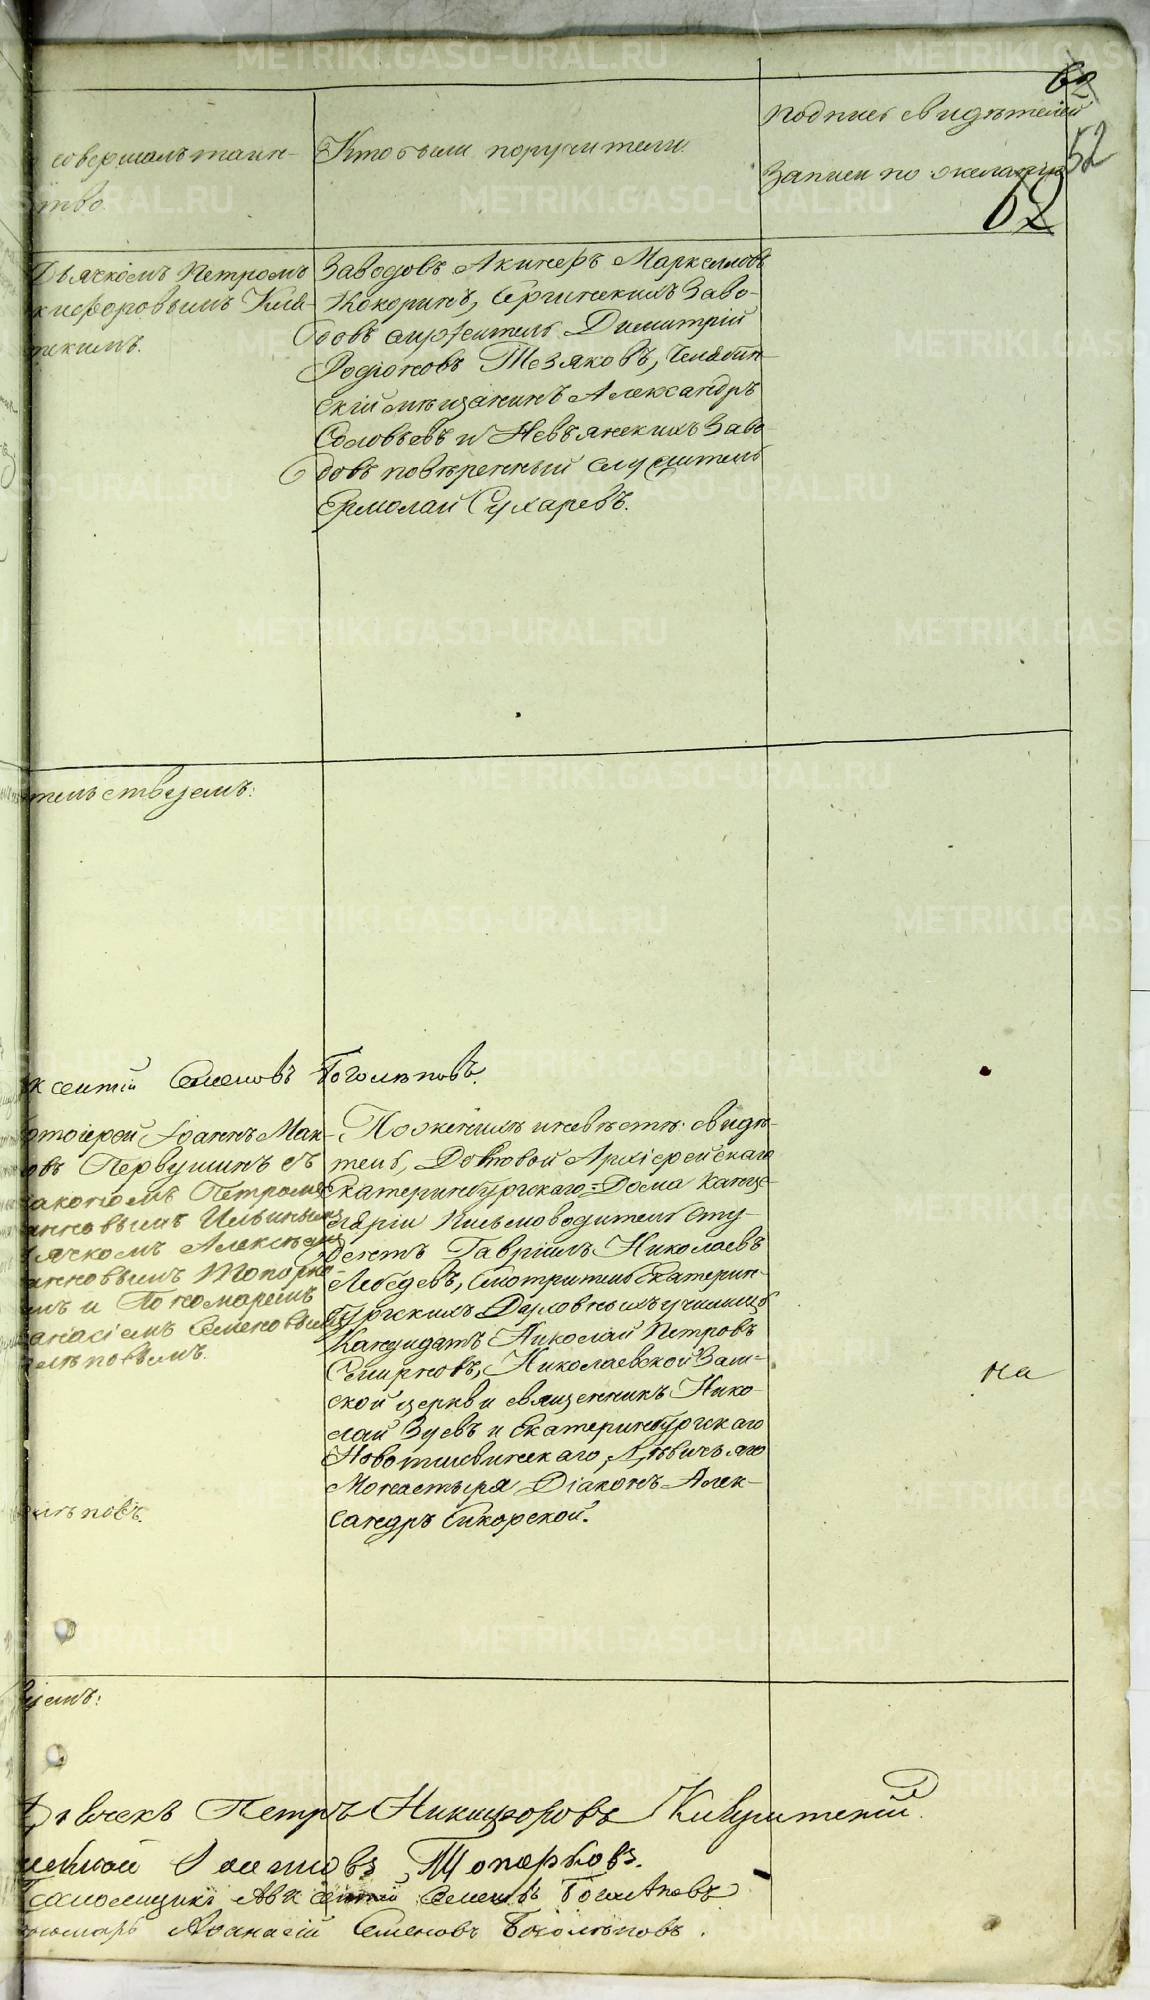 62
52
62
совершалъ таин-
ство.
Кто были поручители.
Подпись свидѣтелей
записи по желанію
Дьячкомъ Петромъ
Никифоровымъ
Заводовъ Акинфъ Маркелловъ
Кокоринъ, Сергинскихъ Заво-
довъ служитель Димитрій
Родіоновъ Тезяковъ, Челябин-
скій мѣщанинъ Александръ
Соловьевъ и Невьянскихъ Заво-
довъ повѣренный служитель
Ермолай Сухаревъ.
тельствуемъ:
ксентій Семеновъ Боголѣповъ.
отоіерей Іоаннъ Мак-
овъ Первушинъ съ
іакономъ Петромъ
анновымъ Ильинымъ
ьячкомъ Алексѣемъ
анновымъ Топорко-
мъ и Пономаремъ
анасіемъ Семеновымъ
олѣповымъ.
По женихѣ и невѣстѣ: свидѣ-
тель, Домовой Архіерейскаго
Екатеринбургскаго Дома Канце-
ляріи Письмоводитель Сту-
дентъ Гавріилъ Николаевъ
Лебедевъ, Смотритель Екатерин-
бургскихъ Духовныхъ училищъ
Кандидатъ Николай Петровъ
Смирновъ, Николаевской
ской церкви священникъ Нико-
лай Зуевъ и Екатеринбургскаго
Новотихвинскаго Дѣвичьяго
Монастыря Діаконъ Алек-
сандръ Сикорской.
на
олѣповъ.
уемъ:
Дьячекъ Петръ Никифоровъ
Топорковъ.
Авксентій Семеновъ Боголѣповъ
ономарь Аѳанасій Семеновъ Боголѣповъ.